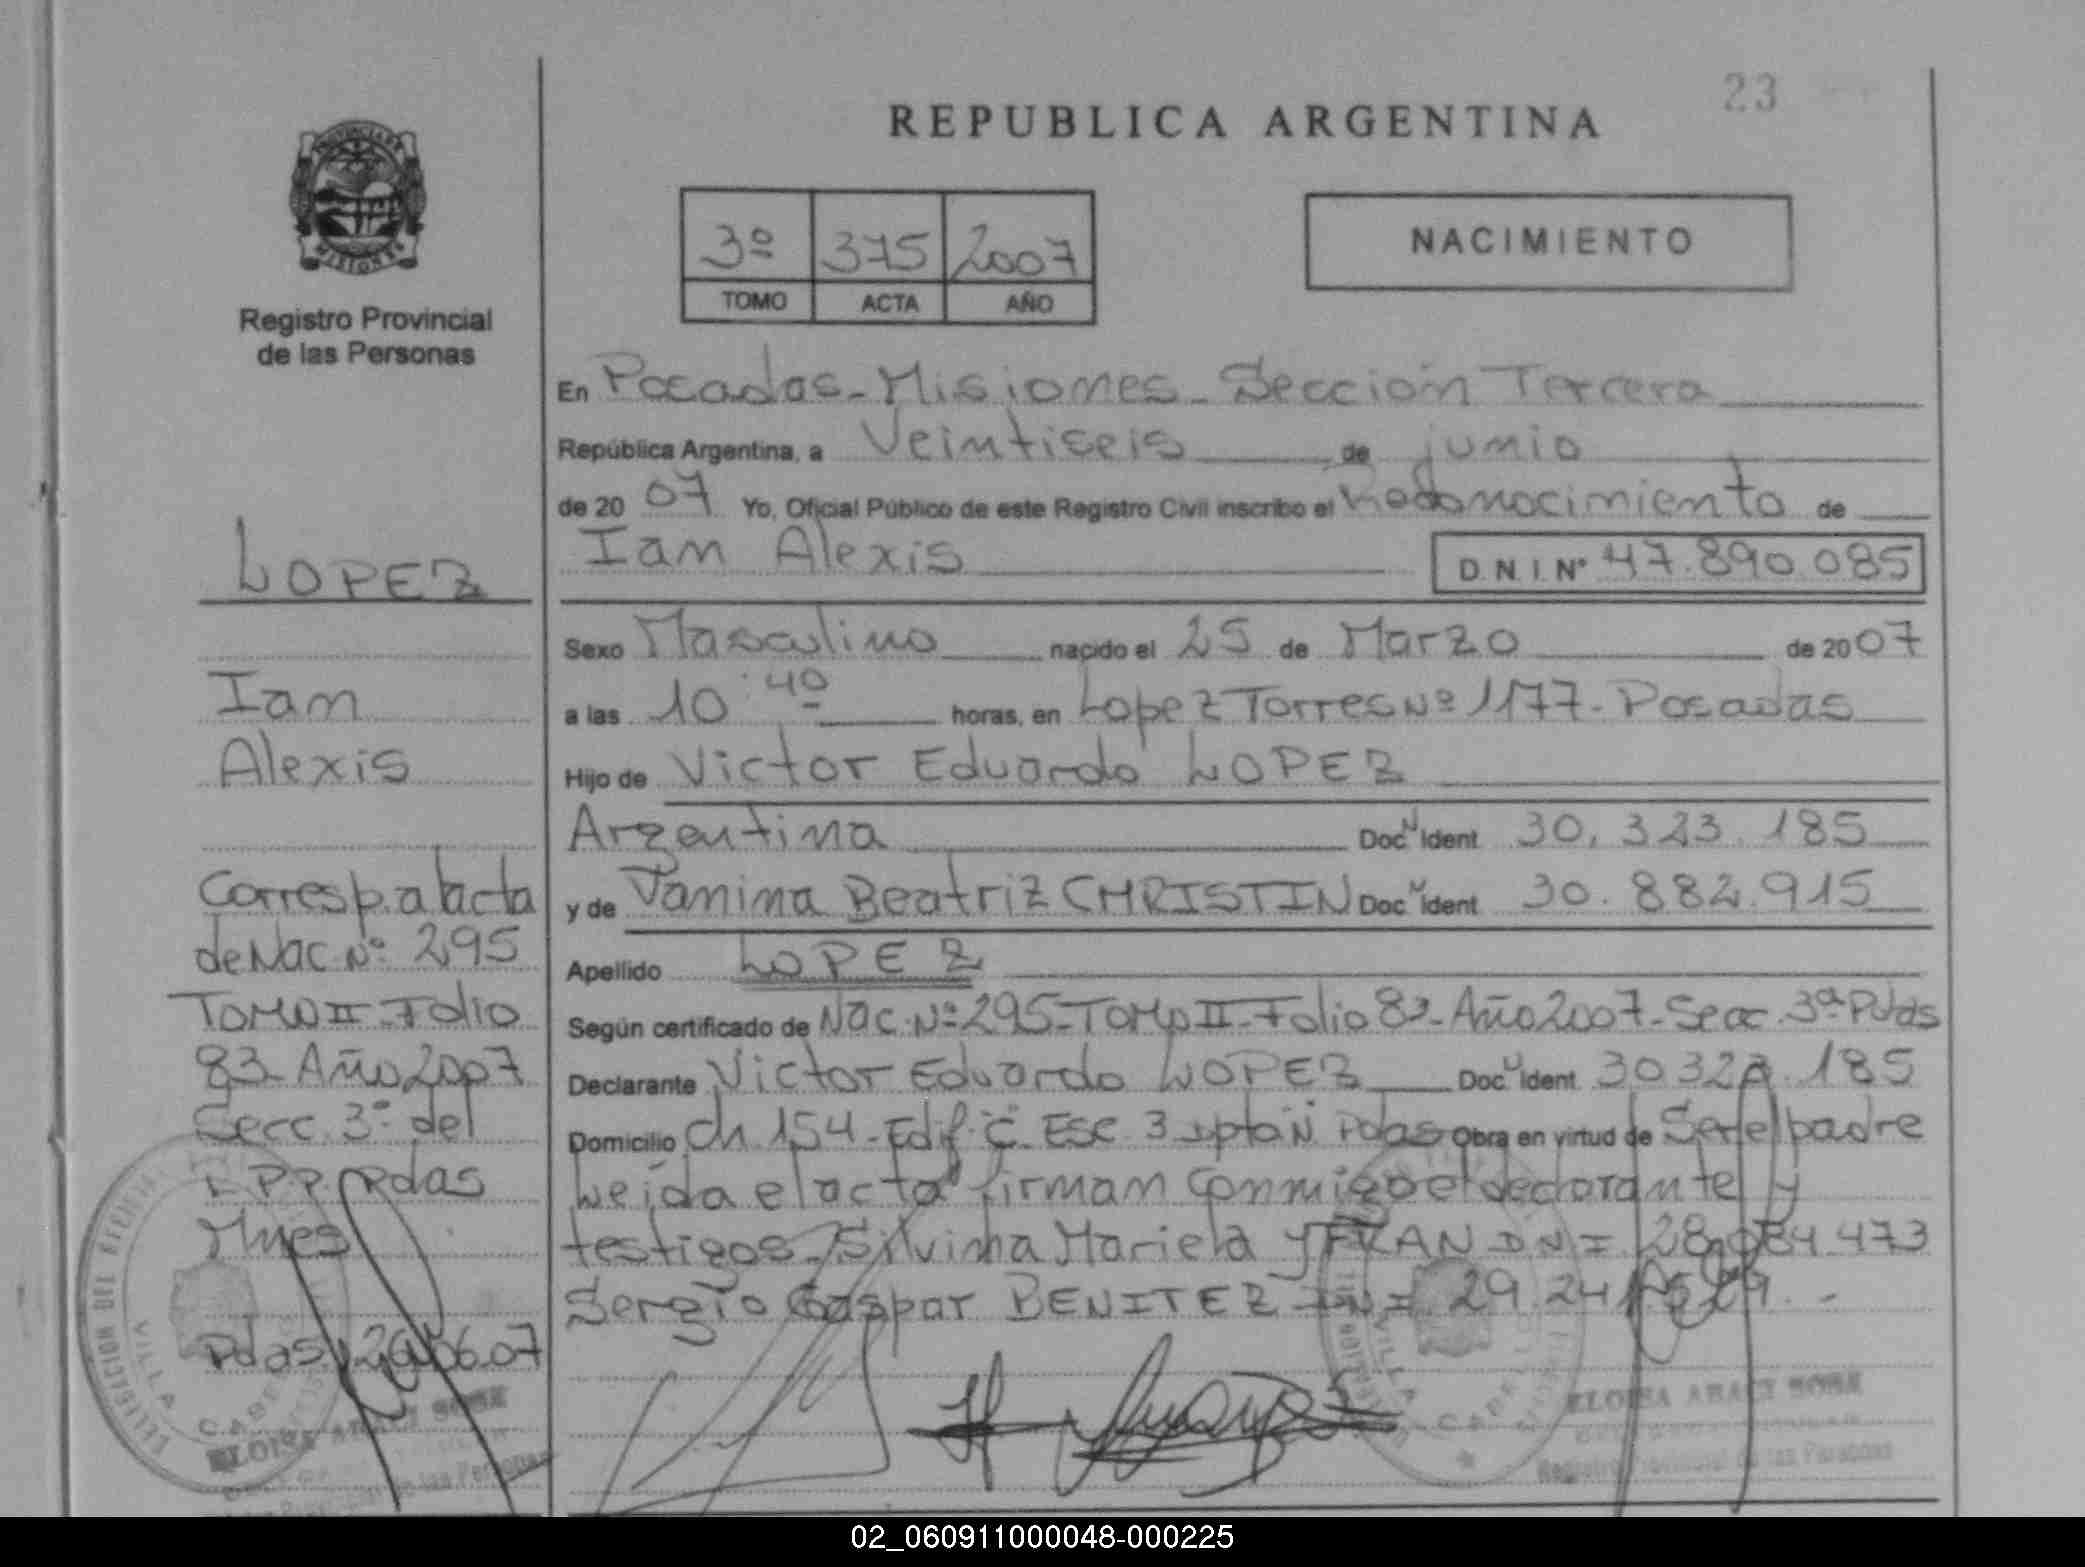 23
REPUBLICA ARGENTINA
PROVINCIA DE
MISIONES
Registro Provincial
de las Personas
3º 375 2007
TOMO ACTA AÑO
NACIMIENTO
En Posadas - Misiones - Sección Tercera
República Argentina, a Veintiseis de junio
de 2007 Yo, Oficial Público de este Registro Civil inscribo el Reconocimiento de
Ian Alexis D.N.I. Nº 47.890.085
Sexo Masculino nacido el 25 de Marzo de 2007
a las 10:40 horas, en Lopez Torres Nº 1177 - Posadas
Hijo de Victor Eduardo LOPEZ
Argentina Doc Ident 30.323.185
y de Yanina Beatriz CHRISTIN Doc Ident 30.882.915
Apellido LOPEZ
Según certificado de Nac. Nº 295 - Tomo II - Folio 83 - Año 2007 - Secc. 3ª Pdas
Declarante Victor Eduardo LOPEZ Doc Ident 30.323.185
Domicilio Ch 154 - Edif. C Esc. 3 Pdas Obra en virtud de Ser el padre
Leída el acta firman conmigo el declarante y
testigos Silvina Mariela DNI 28.084.473
Sergio Gaspar BENITEZ DNI 29.241
ELOISA ARACI SOSA
Registro Provincial de las Personas
LOPEZ
Ian
Alexis
Corresp. al acta
de Nac. Nº 295
Tomo II - Folio
83 - Año 2007
Secc. 3ª del
R.P.P. Pdas
Mnes
Pdas, 26.06.07
VILLA CABELLO
ELOISA ARACI SOSA
02_060911000048-000225